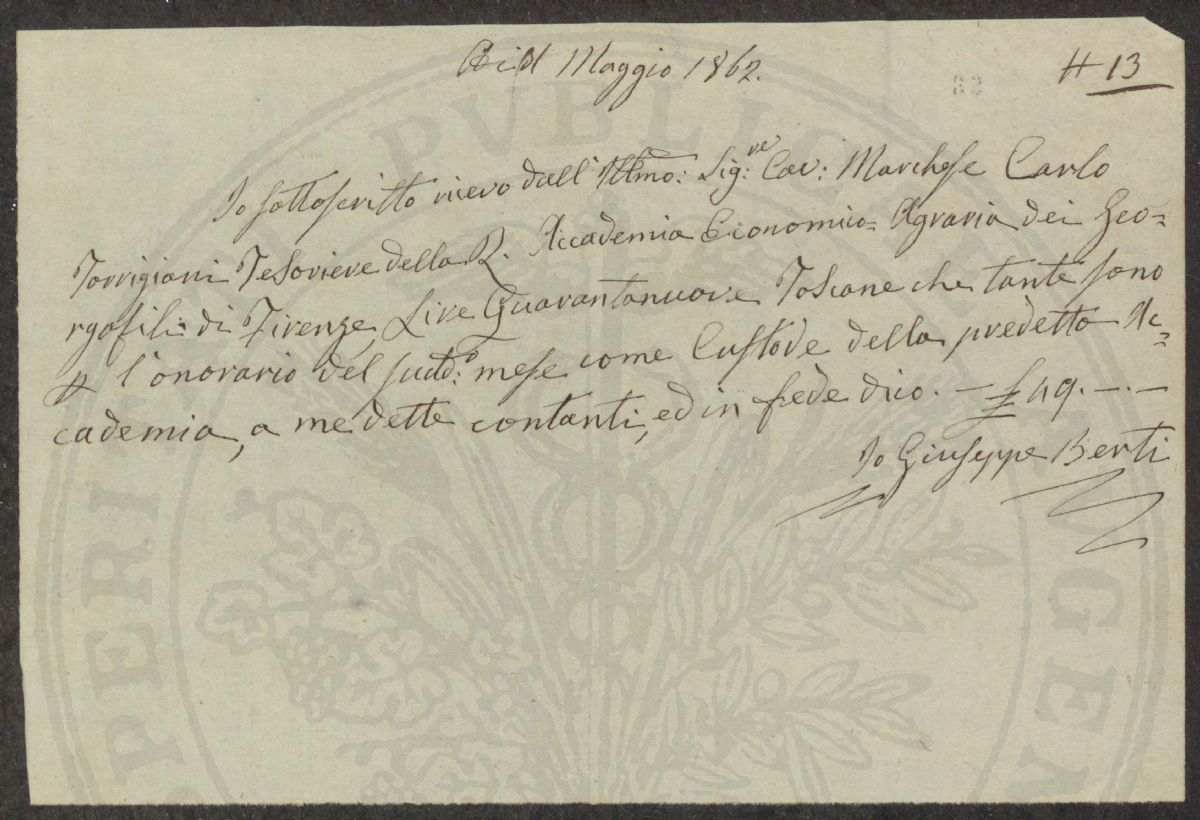 Maggio 1862.
# 13
68
Io sottoscritto ricevo dall' Illmo: Sig:re Cav: Marchese Carlo
Torrigiani Tesoriere della R. Accademia Economico=Agraria dei Geo=
rgofili di Firenze, Lire Quarantanuove Toscane che tante sono
l'onorario del sudd:o mese come Custode della predetta Ac=
cademia, a me dette contanti, ed in fede dico. — £ 49. —.—
Io Giuseppe Berti
PUBLICAE
PERITATI AUGEN